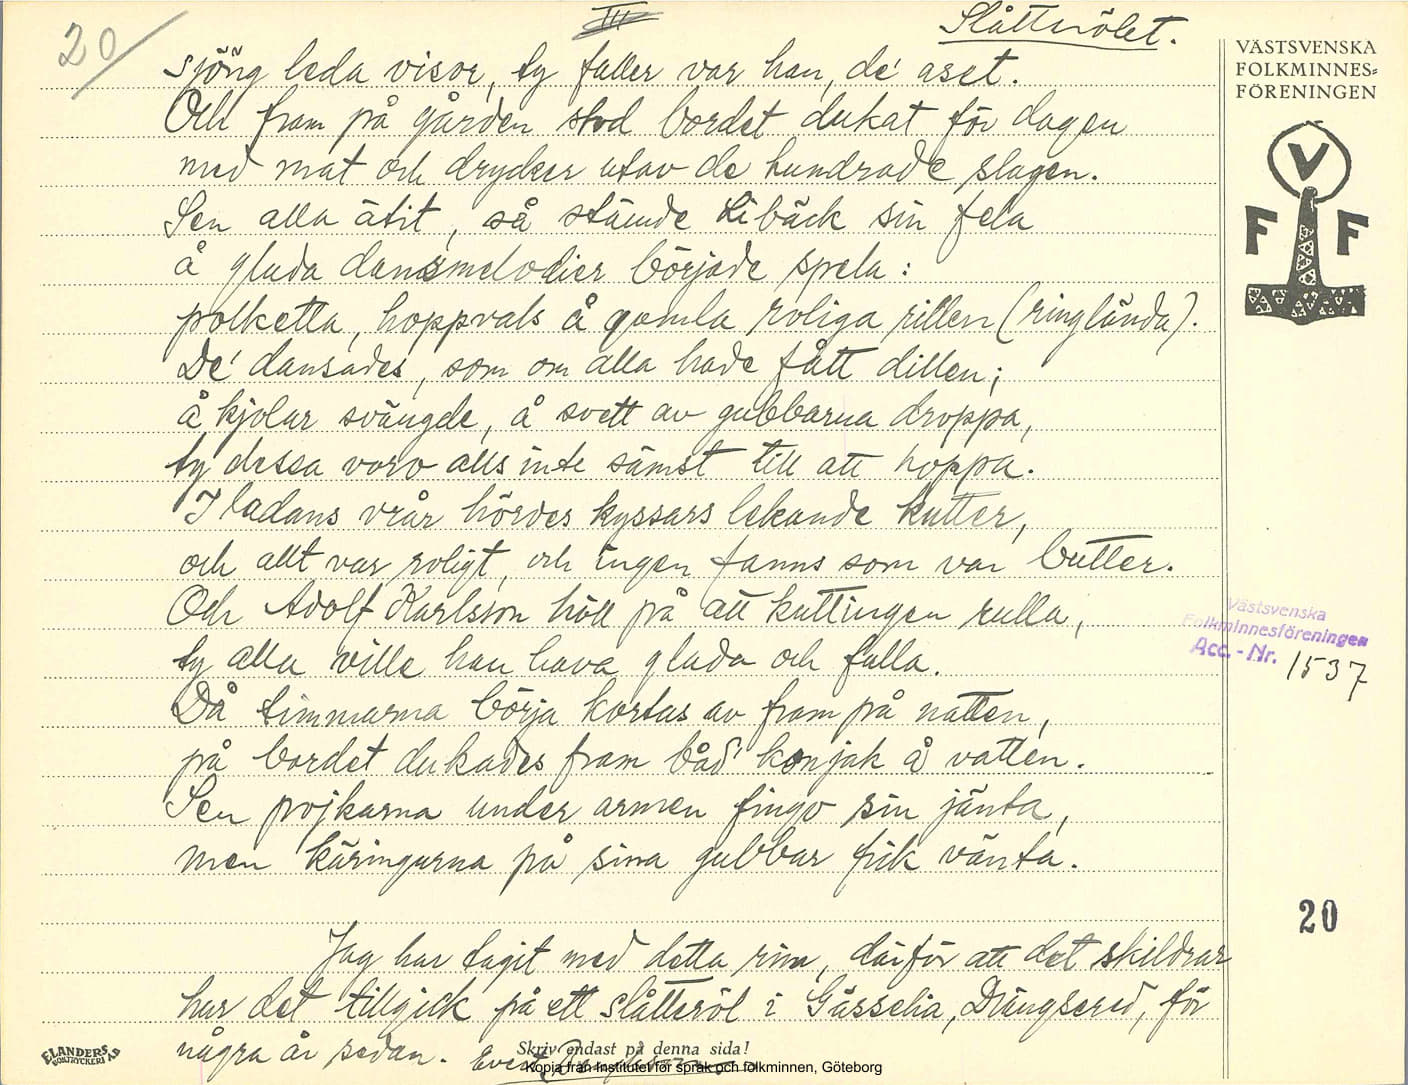 20
III
Slåtterölet.
sjöng leda visor, ty faller var han, de' aset.
Och fram på gården stod bordet dukat för dagen
med mat och drycker utav de hundrade slagen.
Sen alla ätit, så stämde Libäck sin fela
å glada dansmelodier började spela:
polketta, hoppvals å gamla roliga rillen (ringlända).
De' dansades, som om alla hade fått dillen;
å kjolar svängde, å svett av gubbarna droppa,
ty dessa voro alls inte sämst till att hoppa.
I ladans vrår hördes kyssars lekande kutter,
och allt var roligt, och ingen fanns som var butter.
Och Adolf Karlsson höll på att kuttingen rulla,
ty alla ville han hava glada och fulla.
Då timmarna börja kortas av fram på natten,
på bordet dukades fram båd' konjak å vatten.
Sen pojkarna under armen fingo sin jänta,
men käringarna på sina gubbar fick vänta.
Jag har tagit med detta rim, därför att det skildrar
hur det tillgick på ett slåtteröl i Gässelia, Drängsered, för
några år sedan. Evert
Skriv endast på denna sida!
Kopia från Institutet för språk och folkminnen, Göteborg
ELANDERS BOKTRYCKERI AB
VÄSTSVENSKA
FOLKMINNES=
FÖRENINGEN
V
F F
Västsvenska
Folkminnesföreningen
Acc.-Nr. 1537
20